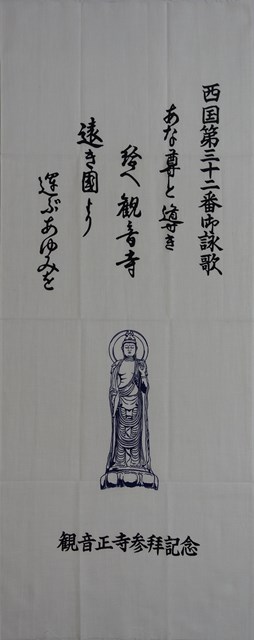 西国第三十二番御詠歌
あな尊と導き
給へ観音寺
遠き國より
運ぶあゆみを
観音正寺参拝記念